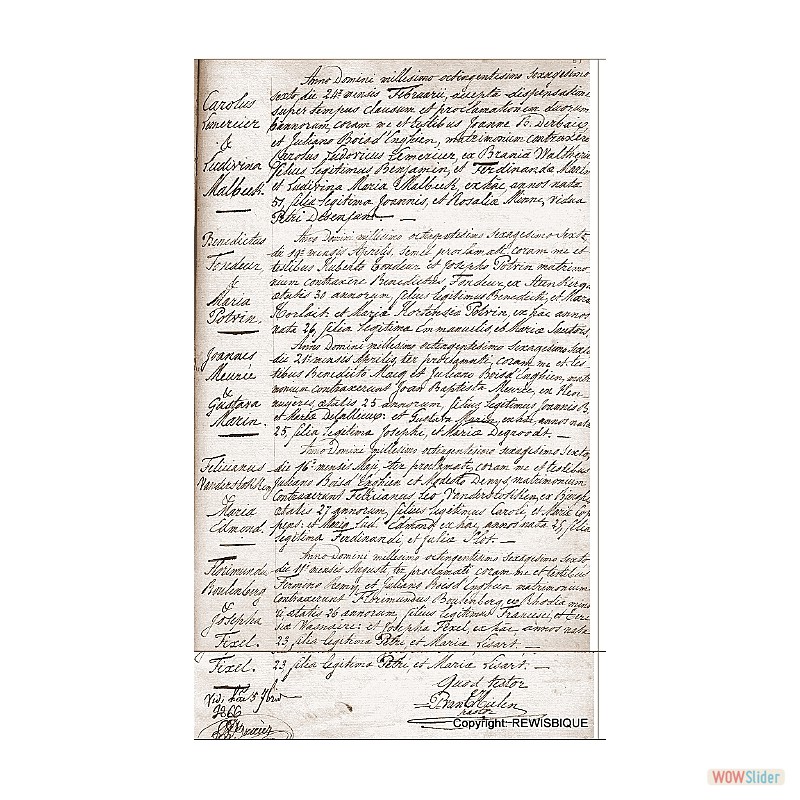 Anno Domini millesimo octingentesimo sexagesimo
sexto die 24ª mensis Februarii, accepta dispensatione
super tempus clausum et proclamationem duorum
bannorum, coram me et testibus Joanne B. Derbaix
et Juliano Boisd'Enghien, matrimonium contraxere
Carolus Ludovicus Lemercier, ex Brania
filius legitimus Benjamin, et Ferdinanda
et Ludivina Maria Malbieck, ex hac annos nata
51, filia legitima Joannis, et Rosalia Minne, vidua
Petri Desenfant. —
Carolus
Lemercier
&
Ludivina
Malbieck.
Anno Domini millesimo octingentesimo sexagesimo sexto
die 19ª mensis Aprilis, semel proclamati, coram me et
testibus Huberto et Josepho Potvin matrimo
nium contraxere Benedictus Fondeur, ex
ætatis 30 annorum, filius legitimus Benedicti, et
Horlait et Maria Hortensia Potvin, ex hac annos
nata 26, filia legitima Emmanuelis et Maria
Benedictus
Fondeur,
&
Maria
Potvin.
Anno Domini millesimo octingentesimo sexagesimo sexto
die 21ª mensis Aprilis, ter proclamati, coram me et tes
tibus Benedicto Macq et Juliano Boisd'Enghien, matri
monium contraxerunt Joan Baptista Meurée, ex Hen
nuyeres, ætatis 25 annorum, filius legitimus Joannis B.
et Maria et Gustava Marin, ex hac, annos nata
25, filia legitima Josephi, et Maria Degroodt. —
Joannes
Meurée
&
Gustava
Marin.
Anno Domini millesimo octingentesimo sexagesimo sexto,
die 16ª mensis Maji, ter proclamati, coram me et testibus
Juliano Boisd'Enghien et Modesto Denys, matrimonium
contraxerunt Felicianus Leo ex
ætatis 27 annorum, filius legitimus Caroli, et Maria
et Maria Lud. Edmond ex hac, annos nata 25, filia
legitima Ferdinandi, et Julia Plot. —
Felicianus
&
Maria
Edmond.
Anno Domini millesimo octingentesimo sexagesimo sexto
die 11ª mensis Augusti, ter proclamati coram me et testibus
Firmino Remy, et Juliano Boisd'Enghien matrimonium
contraxerunt Florimundus Boulenborg, ex Rhodia
ætatis 26 annorum, filius legitimus Francisci, et
et Josepha Fixel, ex hac, annos nata
23, filia legitima Petri, et Maria Licart. —
Florimundus
Boulenborg
&
Josepha
Fixel.
Fixel.
23, filia legitima Petri, et Maria Licart. —
Quod testor
pastor
Vidi hac 5 7bris
1866
Copyright: REWISBIQUE
WOWSlider